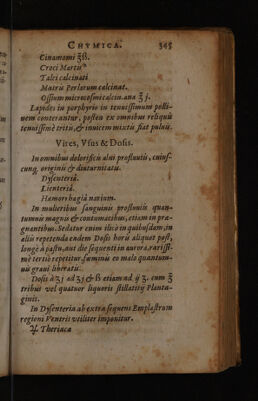 CHYMICA. 345
Cinamomi ℥ß.
Croci Martis
Talci calcinati
Matris Perlarum calcinat.
Ossium microcosmi calcin. ana ʒ j.
Lapides in porphyrio in tenuissimum polli-
nem conterantur, postea ex omnibus reliquis
tenuissimè tritis, & invicem mixtis fiat pulvis.
Vires, Vsus & Dosis.
In omnibus dolorificis alvi profluviis, cuius-
cunq, originis & diuturnitatis.
Dysenteriâ.
Lienteriâ.
Hæmorrhagiâ narium.
In mulieribus sanguinis profluviis quan-
tumvis magnis & contumacibus, etiam in præ-
gnantibus. Sedatur enim illicò in quibusdam, in
aliis repetenda eadem Dosis horis aliquot post,
longè à pastu, aut die sequenti in aurora, rarissi-
mè tertiò repetitur, fœminis eo malo quantum-
vis gravi liberatis.
Dosis à ʒ j ad ʒ j & ß etiam ad ij ʒ. cum ℥
tribus vel quatuor liquoris stillatitij Planta-
ginis.
In Dysenteria ab extra sequens Emplastrum
regioni Ventris utiliter imponitur.
♃ Theriacæ